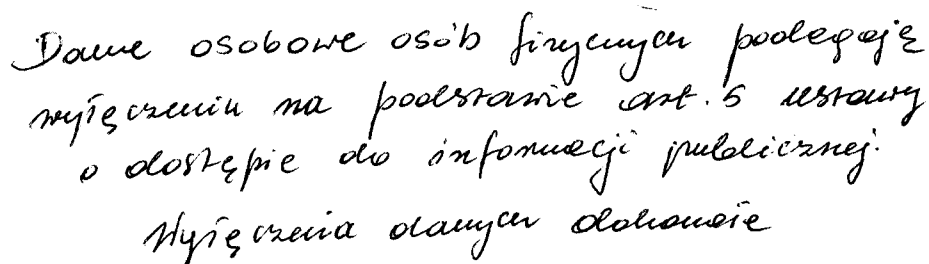 Dane osobowe osób fizycznych podlegają
wyłączeniu na podstawie art. 5 ustawy
o dostępie do informacji publicznej.
Wyłączenia danych dokonała